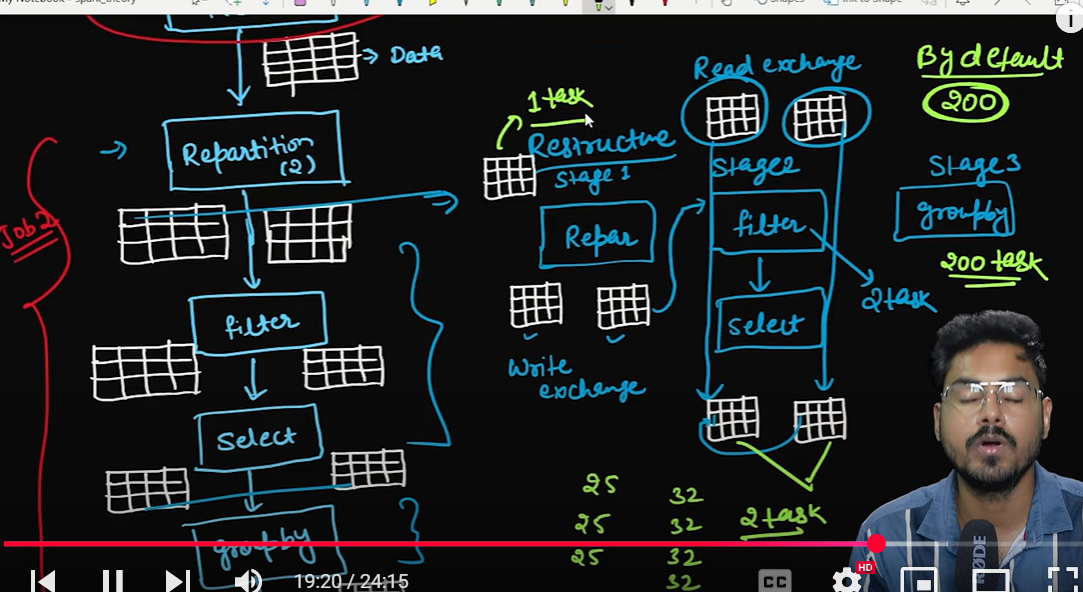 My Notebook - spark_theory
Shapes
Ink to Shape
Data
Repartition
(2)
Job 2
filter
Select
groupby
1 task
Restructure
Stage 1
Repar
Write
exchange
Read exchange
Stage 2
filter
select
2 task
2 task
25
25
25
32
32
32
32
By default
200
Stage 3
groupby
200 task
RØDE
19:20 / 24:15
CC
HD